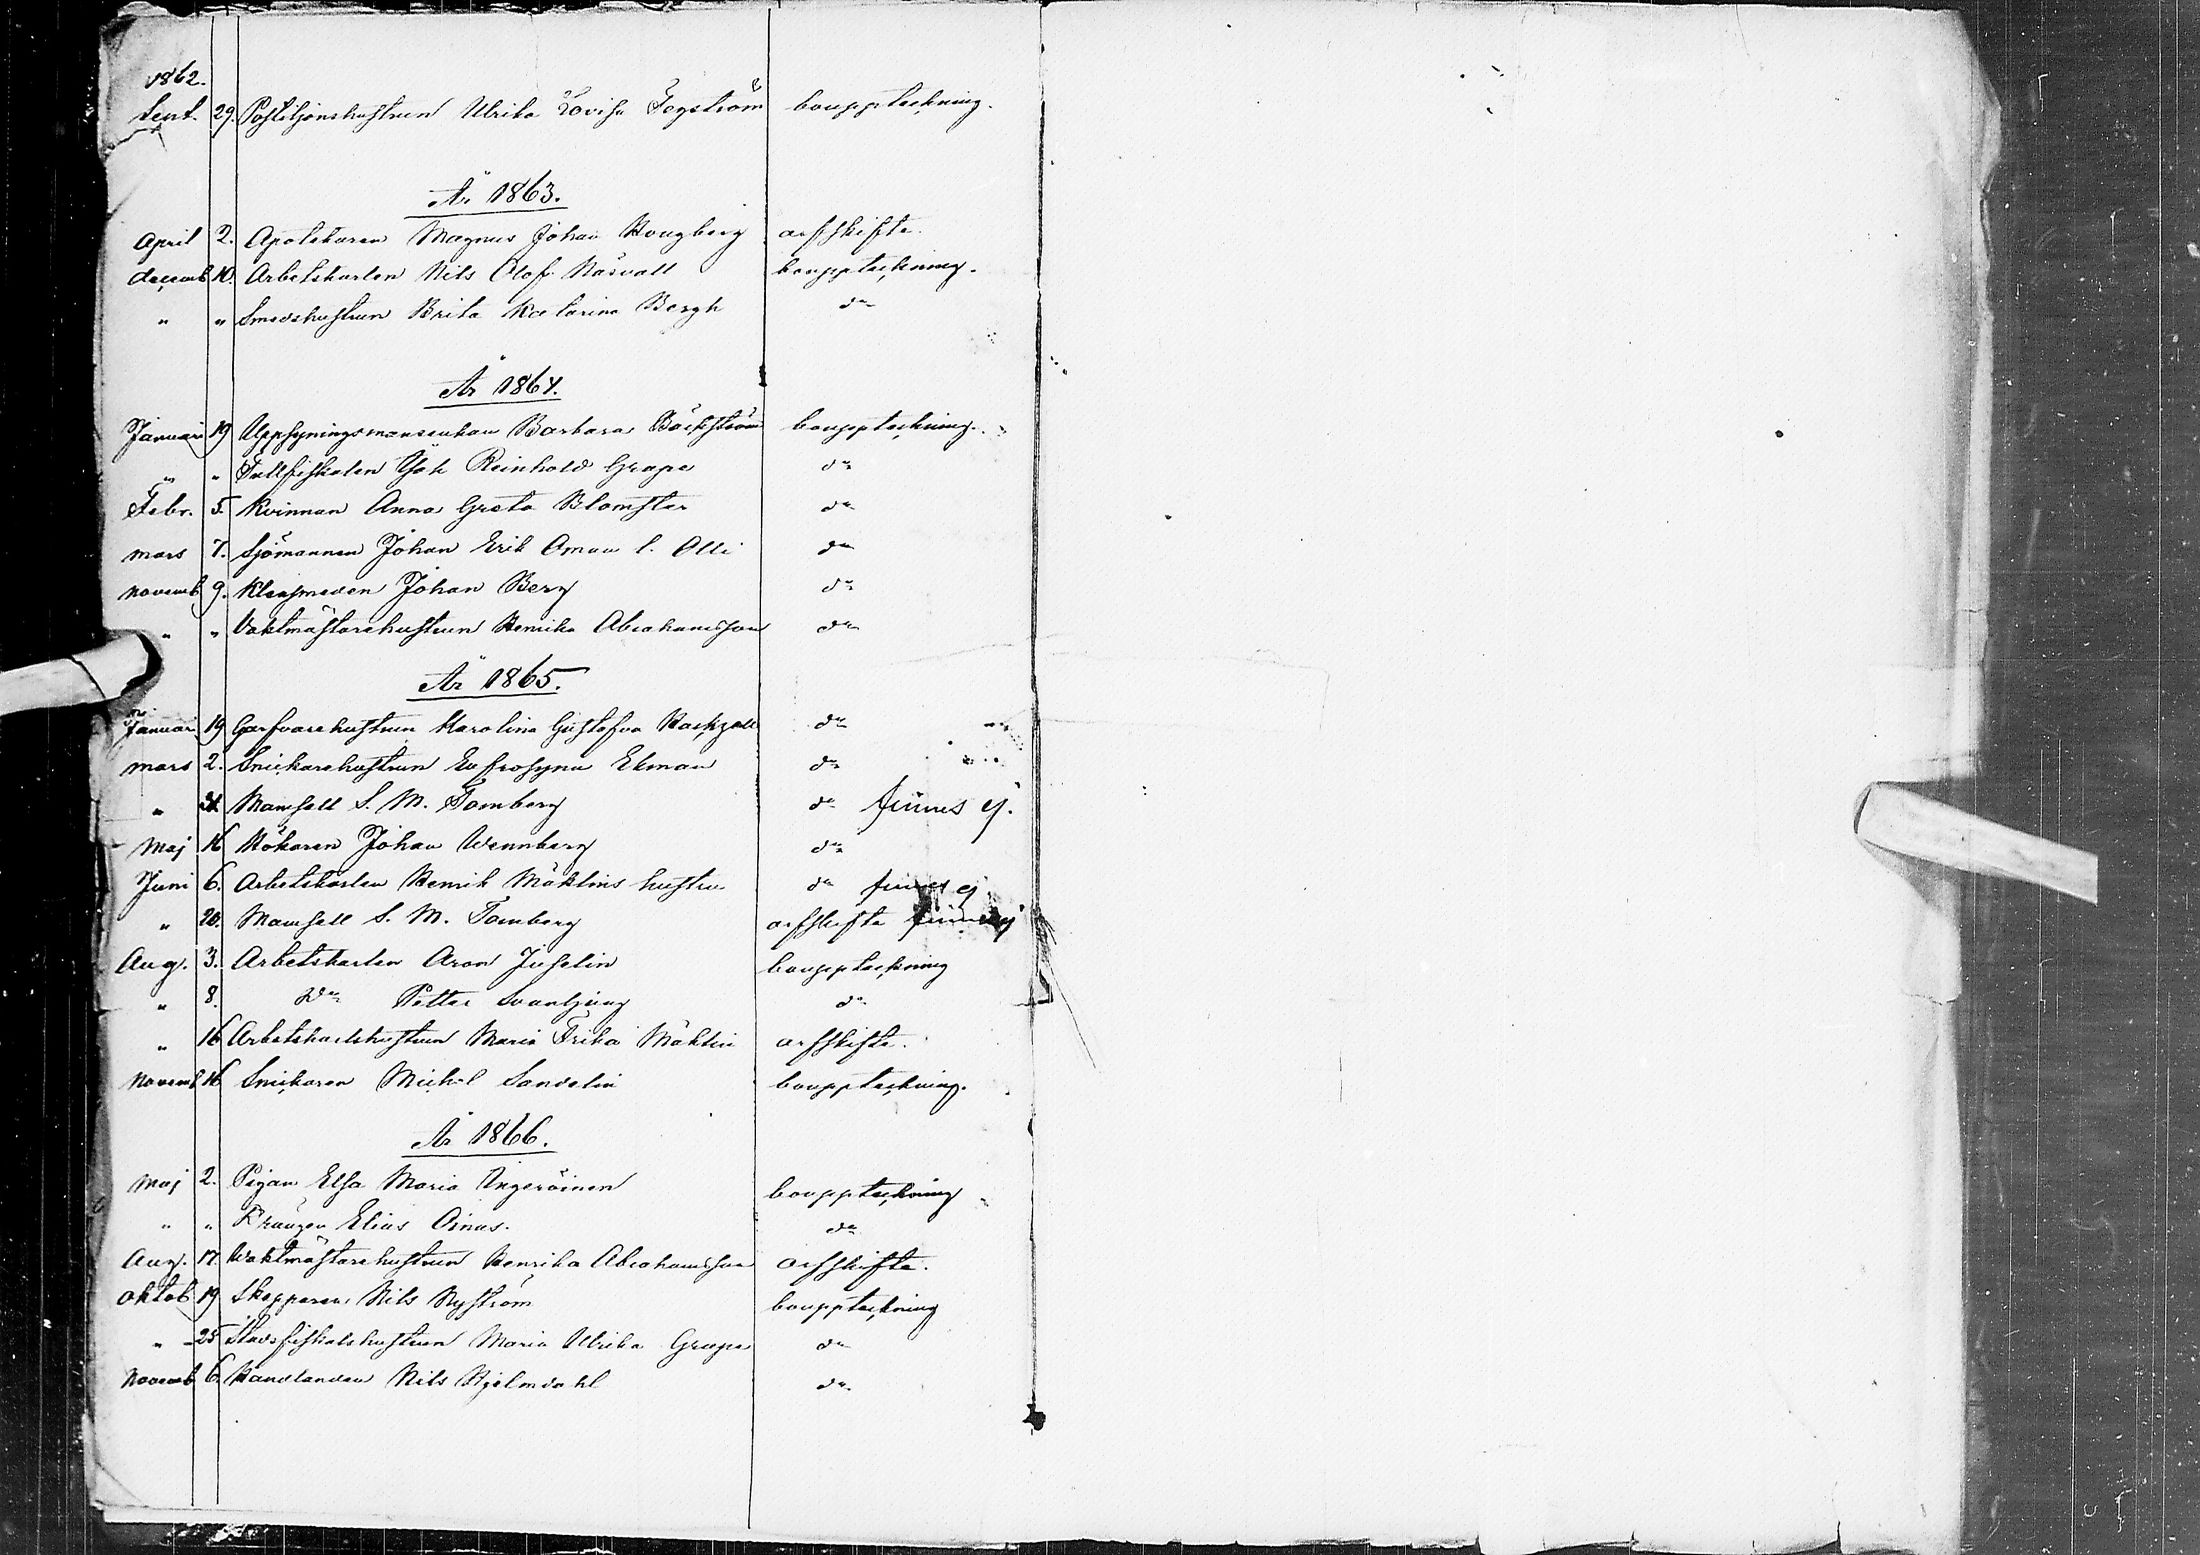 1862.
Sept. 29. Postiljonshustrun Ulrika Lovisa Fogström bouppteckning.
År 1863.
April 2. Apotekaren Magnus Johan Hougberg arfskifte.
decemb 10. Arbetskarlen Nils Olof Näsvall bouppteckning.
" " Smedshustrun Brita Katarina Bergh do
År 1864.
Januari 19 Uppsyningsmansenkan Barbara Bäckström bouppteckning.
" " Tullfiskalen Joh Reinhold Grape do
Febr. 5. Kvinnan Anna Greta Blomster do
mars 7. Sjömannen Johan Erik Öman l. Olli do
novemb 9. Klensmeden Johan Berg do
" " Vaktmästarehustrun Henrika Abrahamsson do
År 1865.
Januari 19 Garfvarehustrun Karolina Gustafva do
mars 2. Snickarehustrun Eufrosyna Ekman do
" 31. Mamsell S. M. Tornberg do finnes ej.
Maj 16 Hökaren Johan Wennberg do
Juni 6. Arbetskarlen Henrik Mäklins hustru do finnes ej
" 20. Mamsell S. M. Tornberg arfskifte finnes ej
Aug. 3. Arbetskarlen Aron Juselin bouppteckning
" 8. Do Petter Svanljung do
" 16 Arbetskarlshustrun Maria Frika Mäklin arfskifte.
novemb 16 Snickaren Michel Sandelin bouppteckning.
År 1866.
Maj 2. Pigan Elsa Maria Ingeröinen bouppteckning
" " Drängen Elias Oinas. do
Aug. 17. Waktmästarehustrun Henrika Abrahamsson arfskifte.
oktob 19 Skepparen Nils Nyström bouppteckning
" 25 Stadsfiskalshustrun Maria Ulrika Grape do
Novemb 6. Handlanden Nils Hjelmdahl do